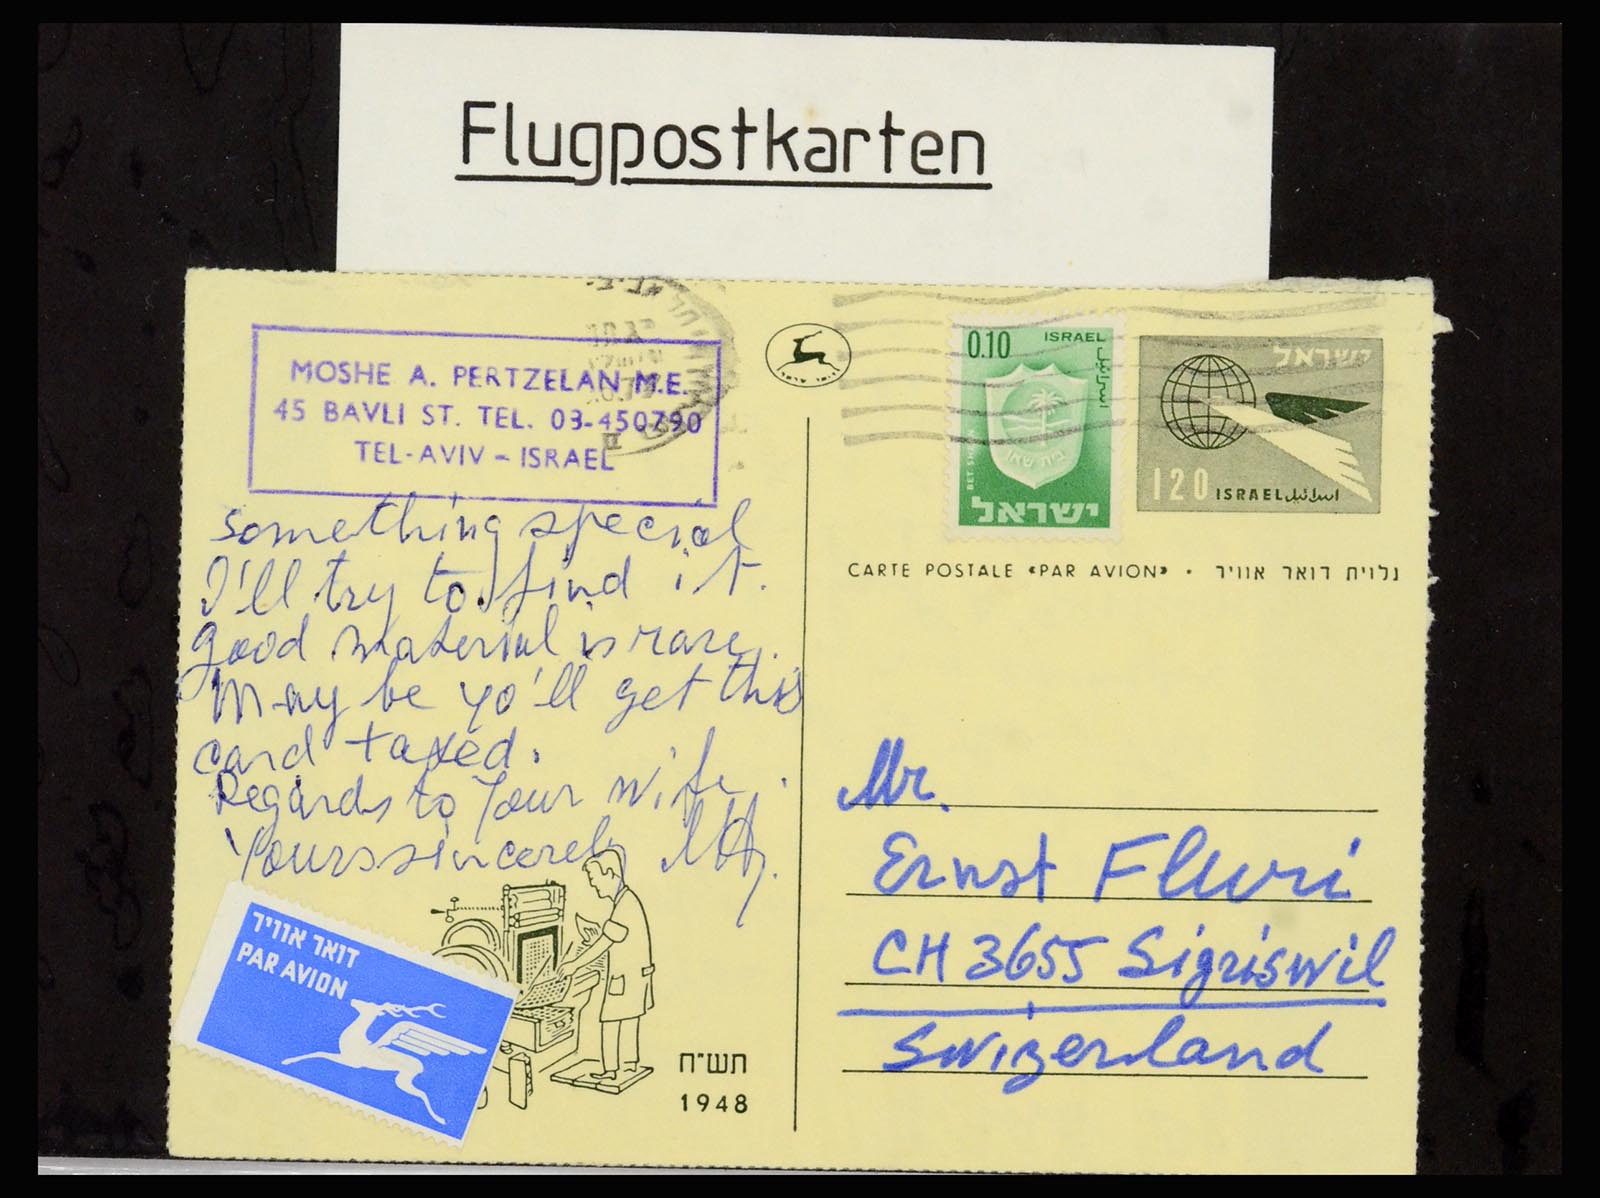 Flugpostkarten
MOSHE A. PERTZELAN M.E.
45 BAVLI ST. TEL. 03-450790
TEL-AVIV - ISRAEL
something special
I'll try to find it.
good material is rare.
May be yo'll get this
card taxed.
Regards to Your wife.
Yours sincerely
דואר אוויר
PAR AVION
תש"ח
1948
0.10 ISRAEL
اسرائيل
BET SHEAN
בית שאן
ישראל
ישראל
120 ISRAEL اسرائيل
CARTE POSTALE «PAR AVION» · גלוית דואר אוויר
Mr.
Ernst Fluri
CH 3655 Sigriswil
Swizerland